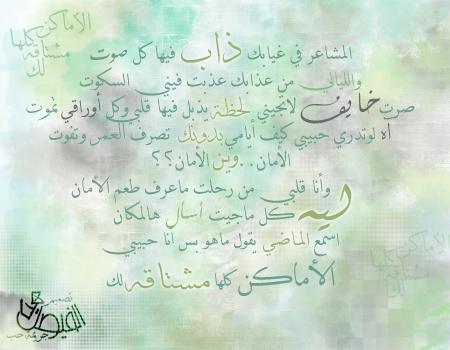 الأماكن كلها
مشتاقه
لك
المشاعر في غيابك ذاب فيها كل صوت
والليالي من عذابك عذبت فيني السكوت
صرت خايف لاتجيني لحظة يذبل فيها قلبي وكل أوراقي تموت
آه لوتدري حبيبي كيف أيامي بدونك تصرف العمر وتفوت
الأمان.. وين الأمان؟؟
وأنا قلبي من رحلت ماعرف طعم الأمان
ليه كل ماجيت أسأل هالمكان
اسمع الماضي يقول ماهو بس أنا حبيبي
الأماكن كلها مشتاقه لك
الأماكن كلها
مشتاقه
لك
تصميم
جريمة حب